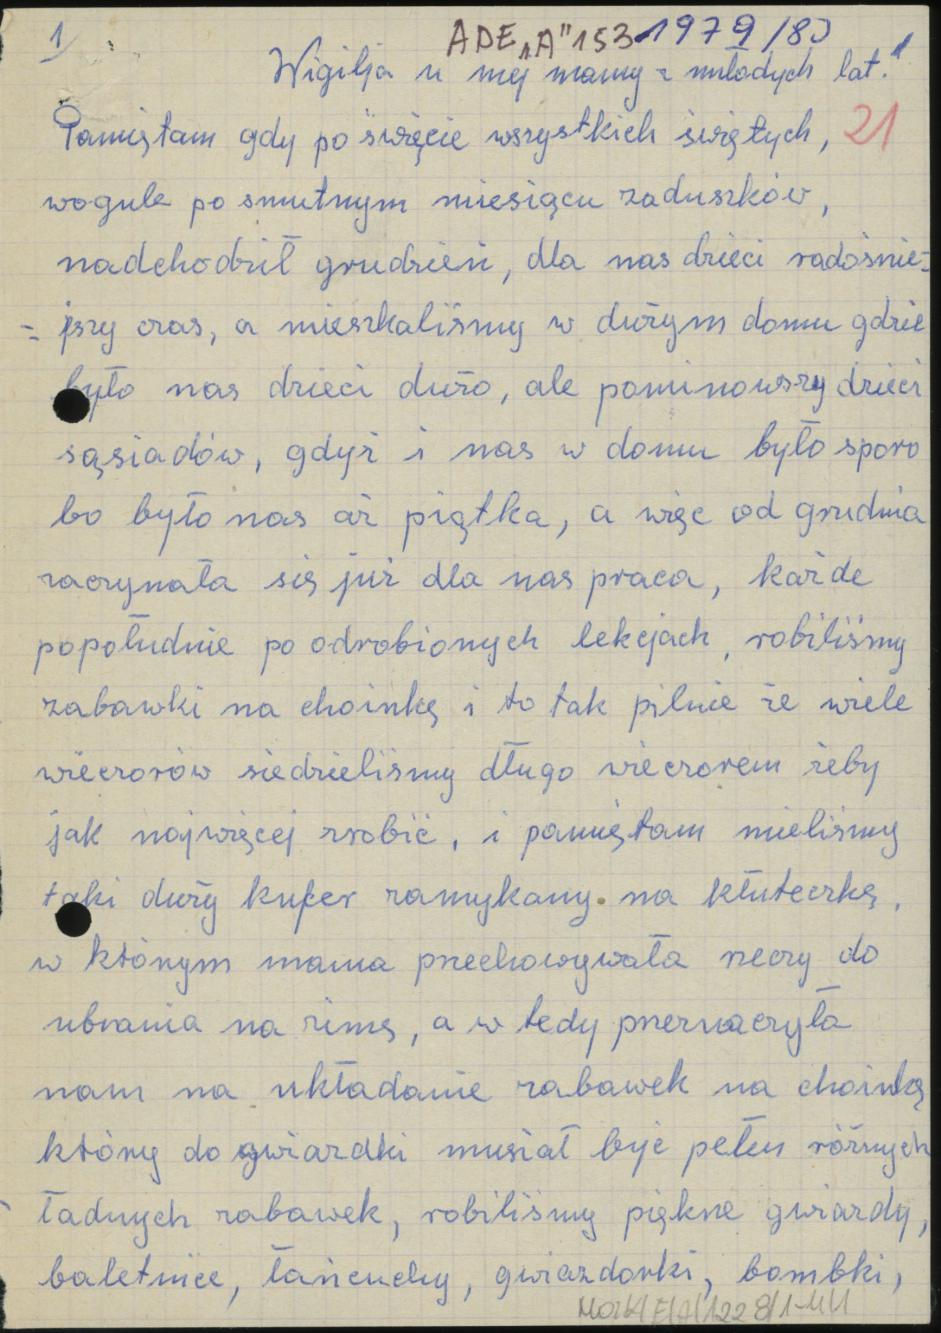 1
ADE „A" 153 1979/80
Wigilja u mej mamy z młodych lat."
Pamiętam gdy po święcie wszystkich świętych, 21
wogule po smutnym miesiącu zaduszków,
nadchodził grudzień, dla nas dzieci radośnie=
=jszy czas, a mieszkaliśmy w dużym domu gdzie
było nas dzieci dużo, ale pominowszy dzieci
sąsiadów, gdyż i nas w domu było sporo
bo było nas aż piątka, a więc od grudnia
zaczynała się już dla nas praca, każde
popołudnie po odrobionych lekcjach, robiliśmy
zabawki na choinkę i to tak pilnie że wiele
wieczorów siedzieliśmy długo wieczorem żeby
jak najwięcej zrobić, i pamiętam mieliśmy
taki duży kufer zamykany na kłuteczkę,
w którym mama przechowywała rzeczy do
ubrania na zimę, a w tedy przeznaczyła
nam na układanie zabawek na choinkę
który do gwiazdki musiał być pełen różnych
ładnych zabawek, robiliśmy piękne gwiazdy,
baletnice, łańcuchy, gwiazdorki, bombki,